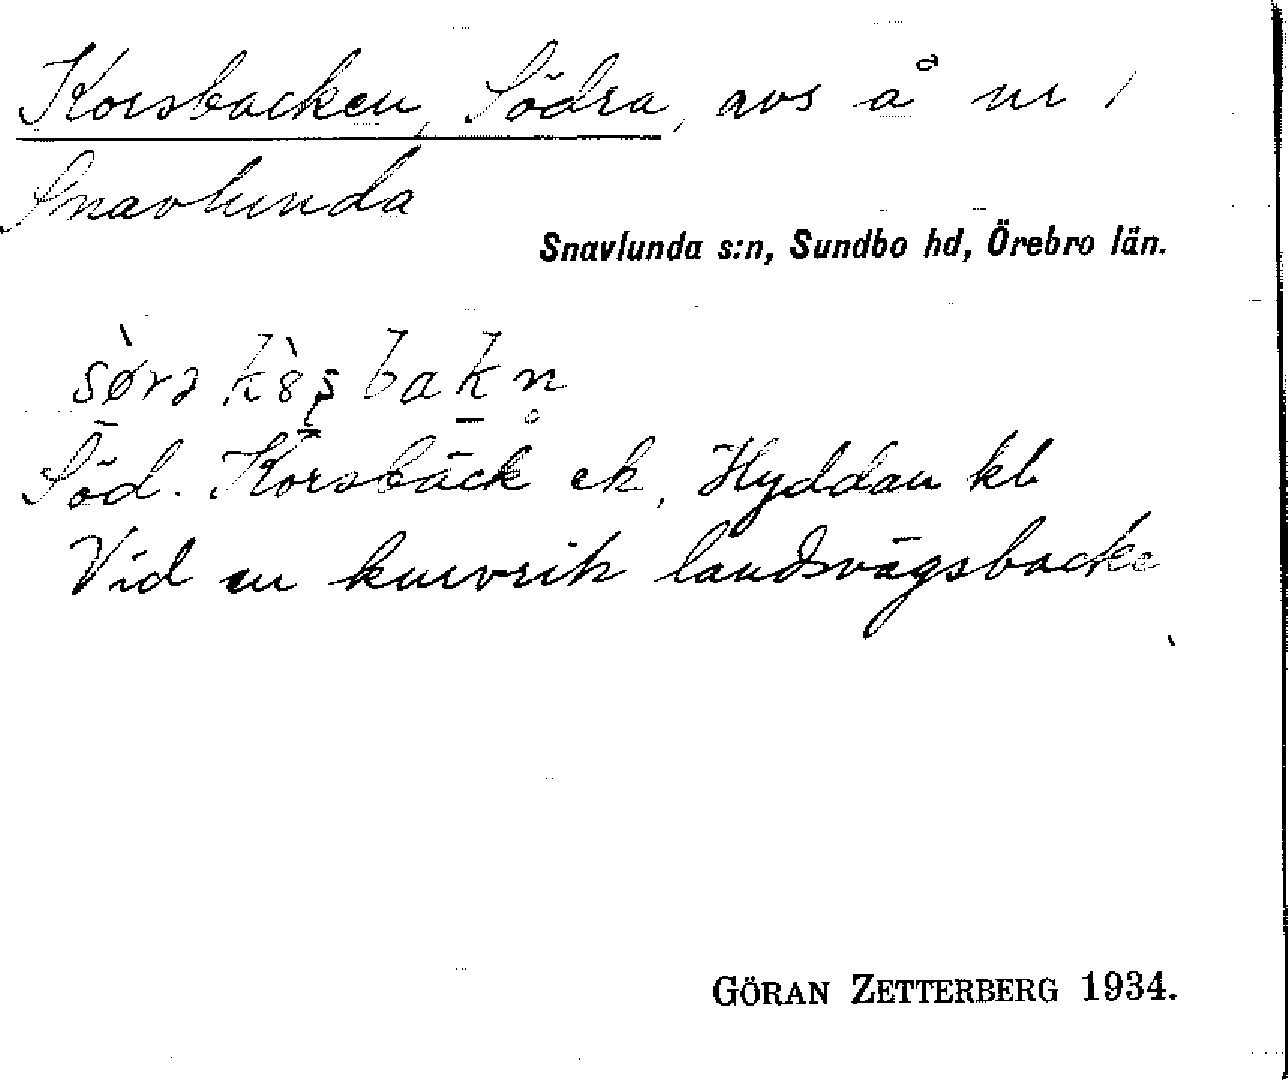 Korsbacken, Södra, avs å nr 1
Snavlunda
Snavlunda s:n, Sundbo hd, Örebro län.
Söd. Korsbäck ek, Hyddan kb
Vid en kurvrik landsvägsbacke
GÖRAN ZETTERBERG 1934.